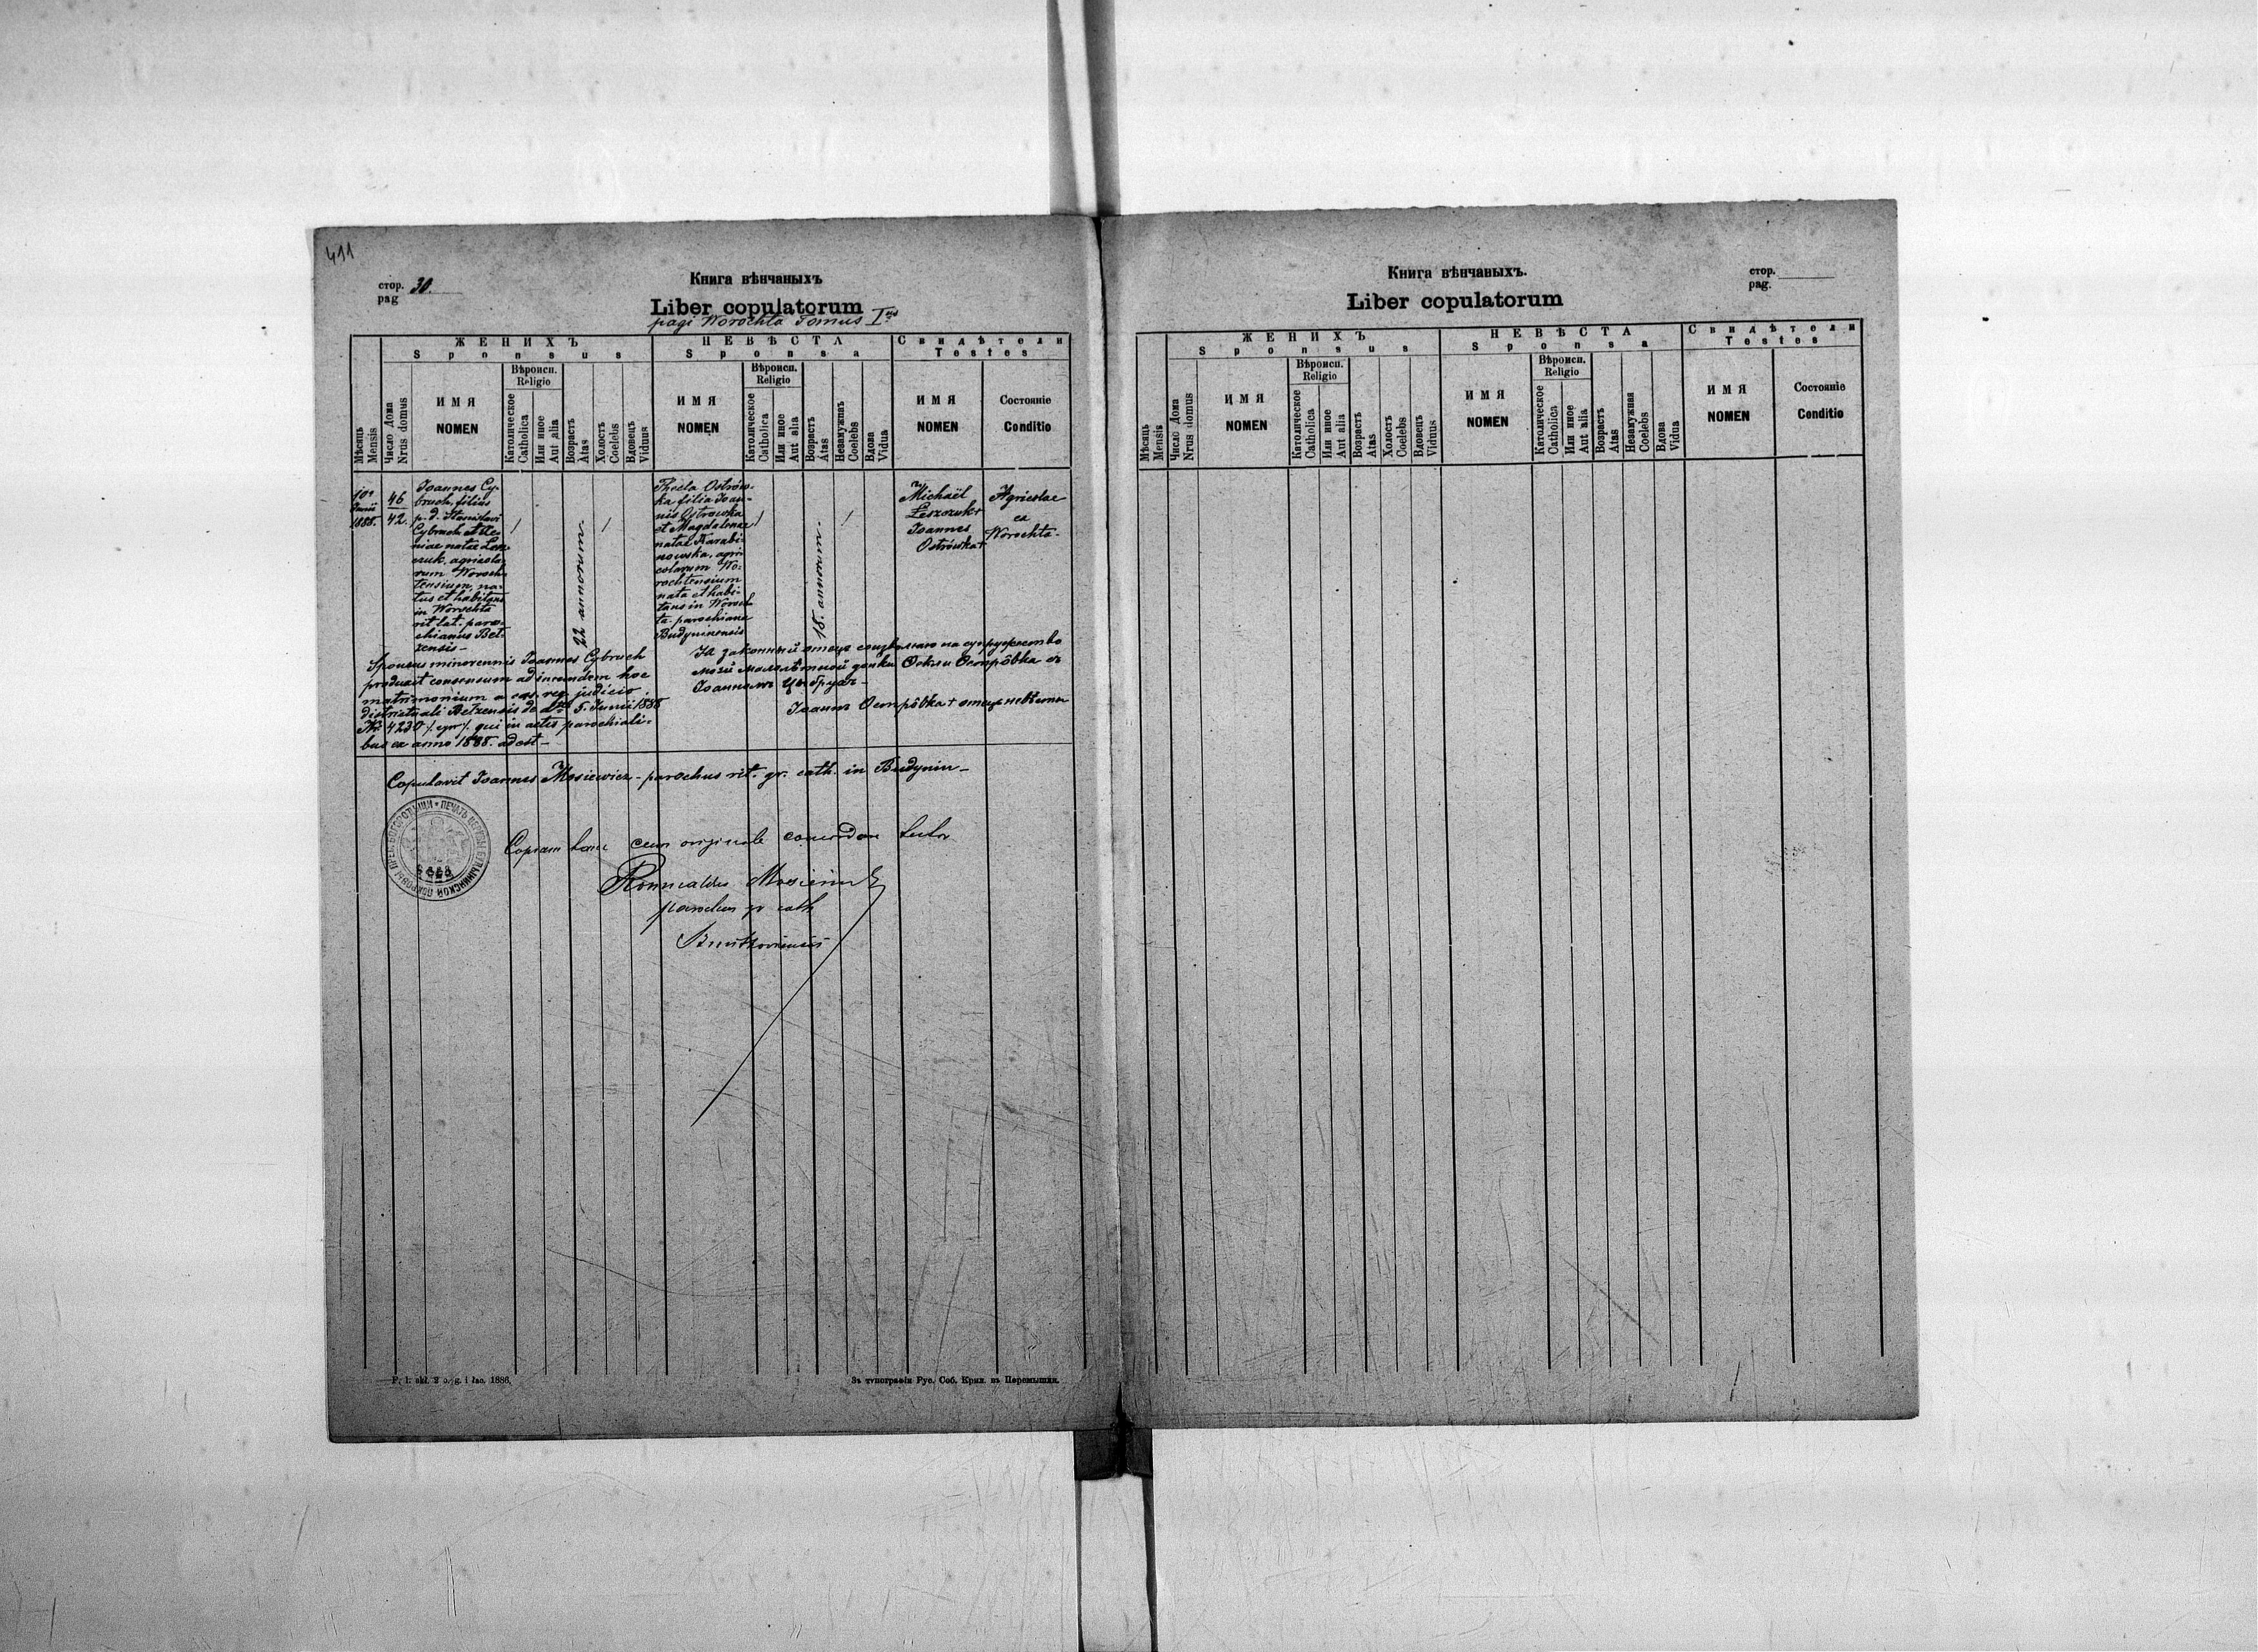 411
стор. 30.
pag
Книга вѣнчаныхъ
Liber copulatorum
pagi Worochta Tomus I
Мѣсяць
Mensis
Число Дома
Nrus domus
ЖЕНИХЪ
Sponsus
ИМЯ
NOMEN
Вѣроисп.
Religio
Католическое
Catholica
Или иное
Aut alia
Возрастъ
Atas
Холостъ
Coelebs
Вдовецъ
Viduus
НЕВѢСТА
Sponsa
ИМЯ
NOMEN
Вѣроисп.
Religio
Католическое
Catholica
Или иное
Aut alia
Возрастъ
Atas
Незамужняя
Coelebs
Вдова
Vidua
Свидѣтели
Testes
ИМЯ
NOMEN
Состояніе
Conditio
10a
Junii
1888.
46
42.
Joannes Cy-
bruch, filius
p. d. Stanislai
Cybruch et
niae natae
czuk, agricola-
rum Woroch-
tensium, na-
tus et habitans
in Worochta
rit. lat. paro-
chianus Bel-
zensis -
/
22 annorum.
/
Thecla Ostrow-
ka filia Joan-
nis Ostrowka
et Magdalenae
natae Karabi-
nowska, agri-
colarum Wo-
rochtensium
nata et habi-
tans in Woroch-
ta parochiana
Budyninensis
/
18. annorum.
/
Michaël
Leszczuk+
Joannes
Ostrówka+
Agricolae
ex
Worochta -
Sponsus minorennis Joannes Cybruch
produxit consensum ad ineundem hoc
matrimonium a caes. reg. judicio
districtuali Belzensis de dto 5. Junii 1888
No 4230 qui in actis parochiali-
bus ex anno 1888. adest -
Я законный отецъ соизволяю на супружество
моей малолѣтной дочки Ѳеклы Острôвка съ
Іоанномъ Цыбрухъ -
Іоаннъ Острôвка + отецъ невѣсты
Copulavit Joannes Mosiewicz - parochus rit. gr. cath. in Budynin -
Copiam hanc cum originale concordare testor
Romualdus Mosiewicz
parochus gr cath
P. 1. 1886.
Зъ типографіи Рус. Соб. Крил. въ Перемышли.
Книга вѣнчаныхъ.
Liber copulatorum
стор.
pag.
Мѣсяць
Mensis
Число Дома
Nrus domus
ЖЕНИХЪ
Sponsus
ИМЯ
NOMEN
Вѣроисп.
Religio
Католическое
Catholica
Или иное
Aut alia
Возрастъ
Atas
Холостъ
Coelebs
Вдовецъ
Viduus
НЕВѢСТА
Sponsa
ИМЯ
NOMEN
Вѣроисп.
Religio
Католическое
Catholica
Или иное
Aut alia
Возрастъ
Atas
Незамужняя
Coelebs
Вдова
Vidua
Свидѣтели
Testes
ИМЯ
NOMEN
Состояніе
Conditio